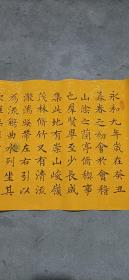 永和九年歲在癸丑
暮春之初會於會稽
山陰之蘭亭脩稧事
也群賢畢至少長咸
集此地有崇山峻領
茂林脩竹又有清流
激湍暎帶左右引以
為流觴曲水列坐其